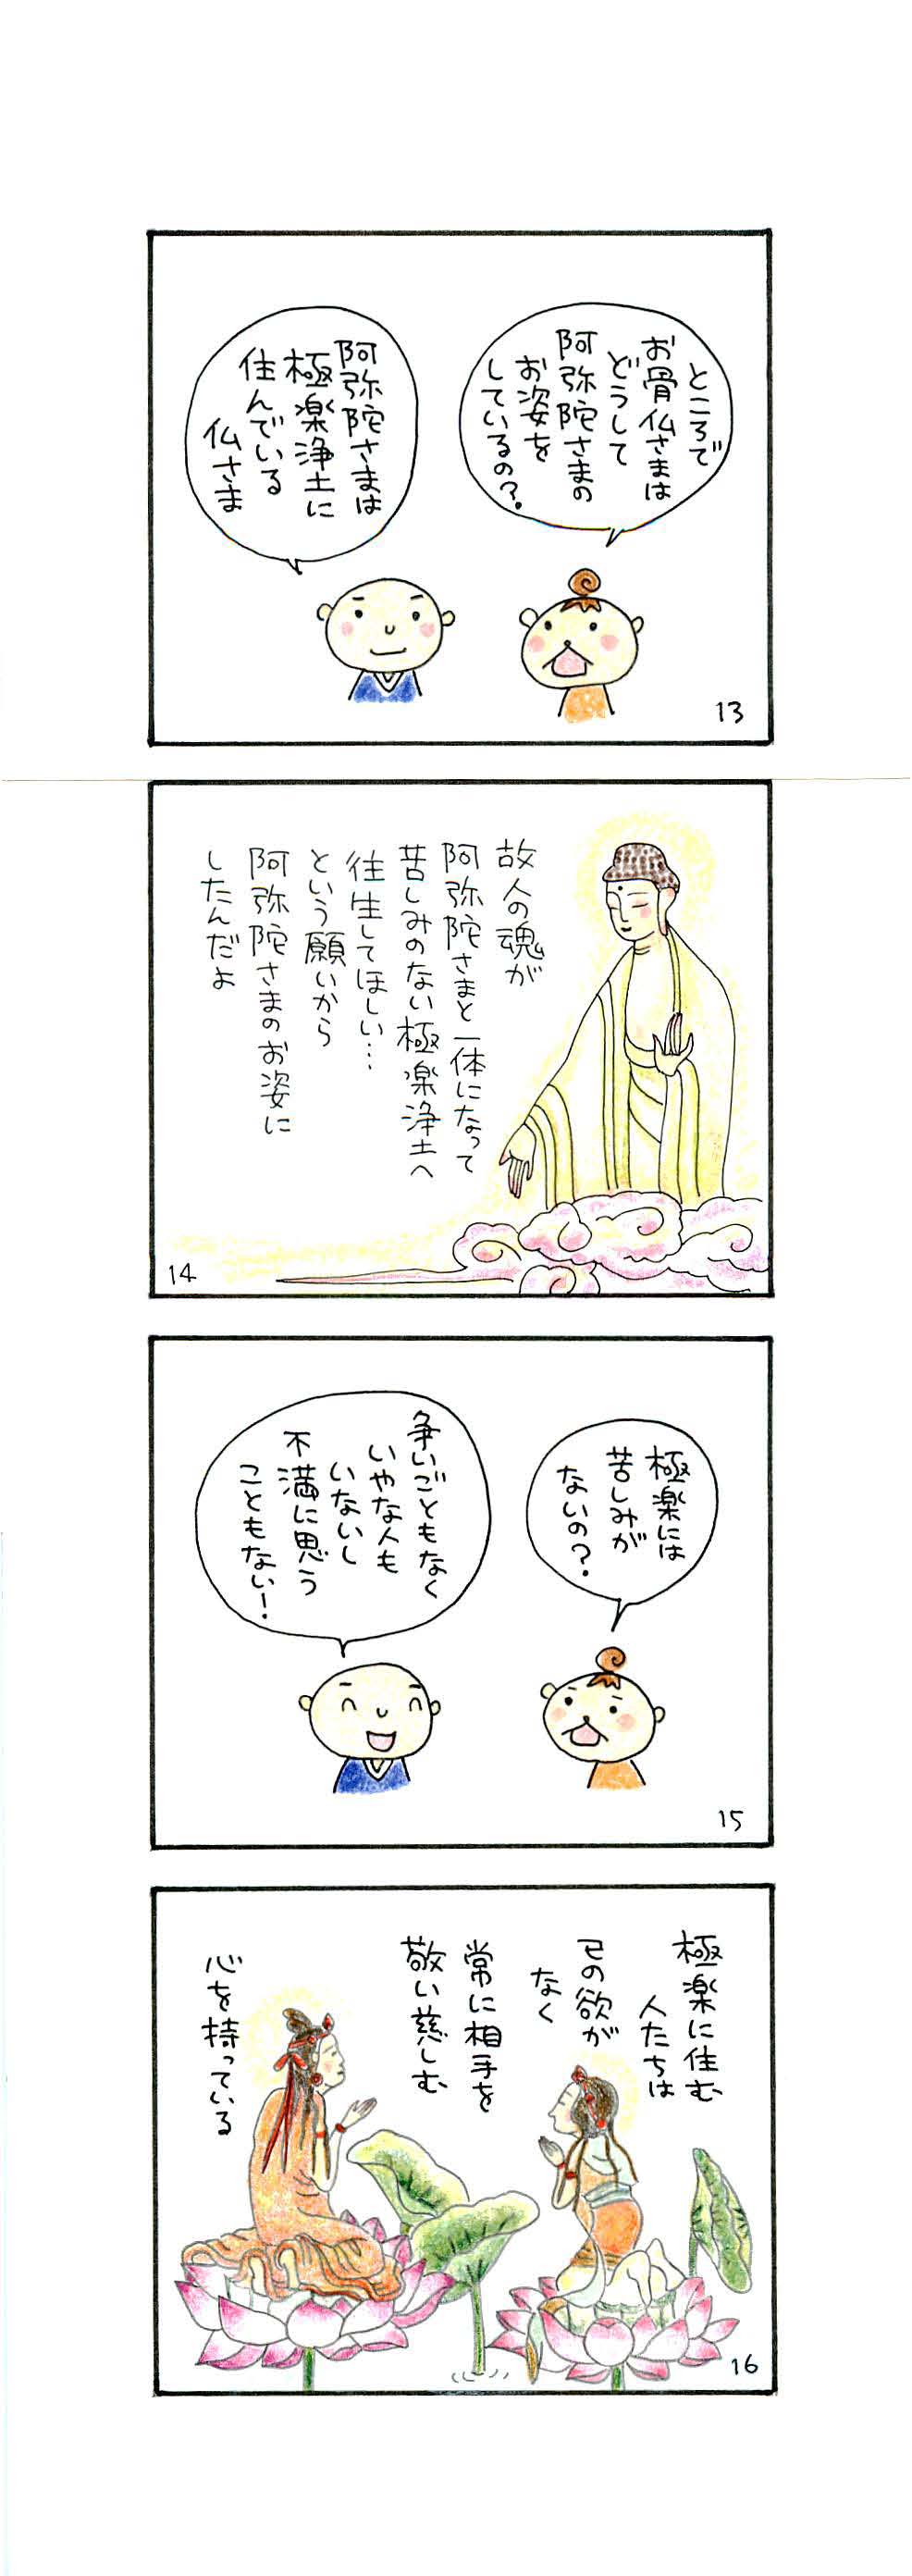 ところで
お骨仏さまは
どうして
阿弥陀さまの
お姿を
しているの?
阿弥陀さまは
極楽浄土に
住んでいる
仏さま
13
故人の魂が
阿弥陀さまと一体になって
苦しみのない極楽浄土へ
往生してほしい…
という願いから
阿弥陀さまのお姿に
したんだよ
14
極楽には
苦しみが
ないの?
争いごともなく
いやな人も
いないし
不満に思う
こともない!
15
極楽に住む
人たちは
己の欲が
なく
常に相手を
敬い慈しむ
心を持っている
16